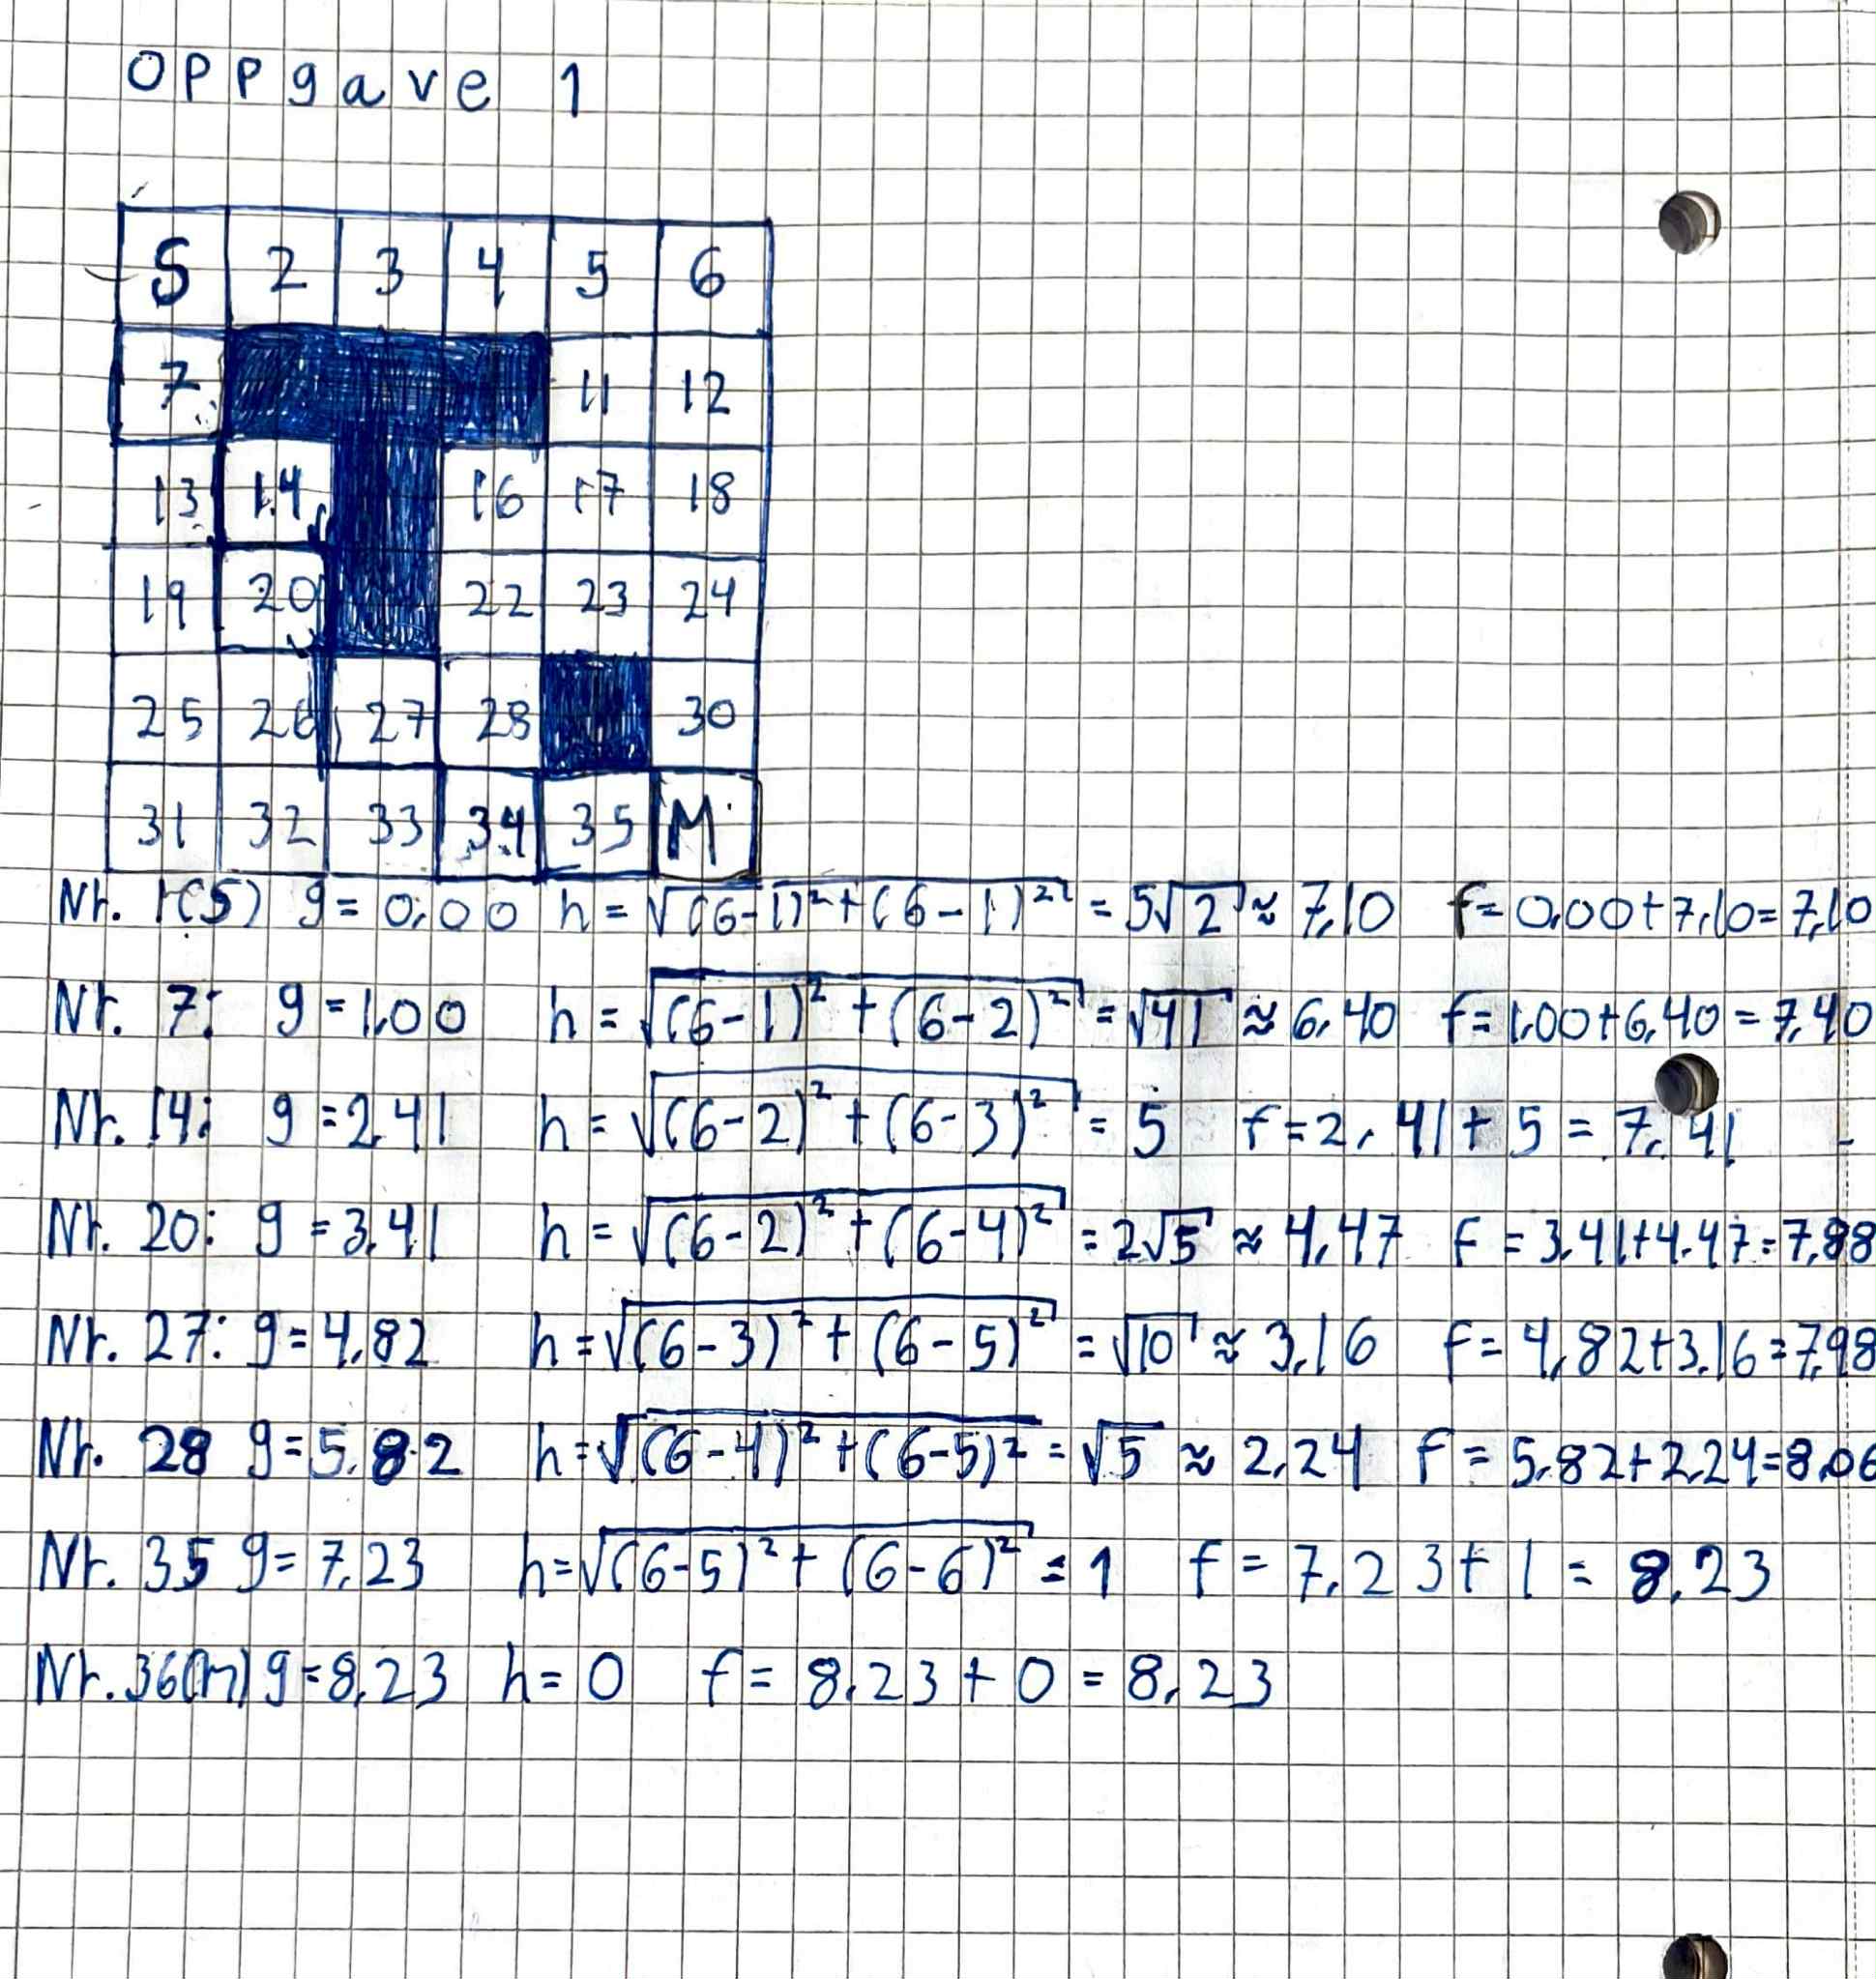 Oppgave 1
S 2 3 4 5 6
7 11 12
13 14 16 17 18
19 20 22 23 24
25 26 27 28 30
31 32 33 34 35 M
Nr. 1(S) g = 0,00 h = √(6-1)²+(6-1)² = 5√2 ≈ 7,10 f = 0,00+7,10=7,10
Nr. 7: g = 1,00 h = √(6-1)² + (6-2)² = √41 ≈ 6,40 f = 1,00+6,40 = 7,40
Nr. 14: g = 2,41 h = √(6-2)² + (6-3)² = 5 f = 2,41 + 5 = 7,41
Nr. 20: g = 3,41 h = √(6-2)² + (6-4)² = 2√5 ≈ 4,47 f = 3,41+4,47=7,88
Nr. 27: g = 4,82 h = √(6-3)² + (6-5)² = √10 ≈ 3,16 f = 4,82+3,16=7,98
Nr. 28 g = 5,82 h = √(6-4)² + (6-5)² = √5 ≈ 2,24 f = 5,82+2,24=8,06
Nr. 35 g = 7,23 h = √(6-5)² + (6-6)² = 1 f = 7,23 + 1 = 8,23
Nr. 36(M) g = 8,23 h = 0 f = 8,23 + 0 = 8,23